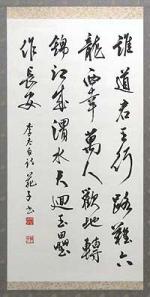 誰道君王行路難六
龍西幸萬人歡地轉
錦江成渭水天迴玉壘
作長安
李太白詩